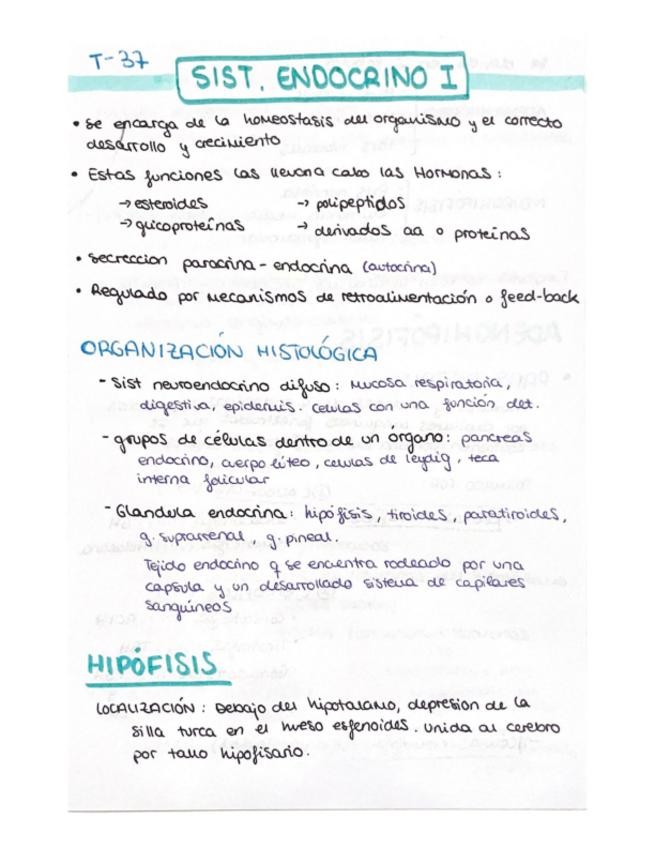 T-37
SIST. ENDOCRINO I
• Se encarga de la homeostasis del organismo y el correcto
desarrollo y crecimiento
• Estas funciones las llevan a cabo las Hormonas :
→ esteroides → polipeptidos
→ glicoproteinas → derivados aa o proteinas
• Secreccion paracrina - endocrina (autocrina)
• Regulado por Mecanismos de retroalimentación o feed-back
ORGANIZACIÓN HISTOLÓGICA
- Sist neuroendocrino difuso : Mucosa respiratoria,
digestiva, epidermis. celulas con una función det.
- grupos de células dentro de un órgano: pancreas
endocrino, cuerpo lúteo, celulas de leydig, teca
interna folicular
- Glandula endocrina : hipófisis, tiroides, paratiroides,
g. suprarrenal, g. pineal.
Tejido endocrino q se encuentra rodeado por una
capsula y un desarrollado sistema de capilares
sanguíneos
HIPÓFISIS
LOCALIZACIÓN : Debajo del hipotalamo, depresion de la
silla turca en el hueso esfenoides. unida al cerebro
por tallo hipofisario.